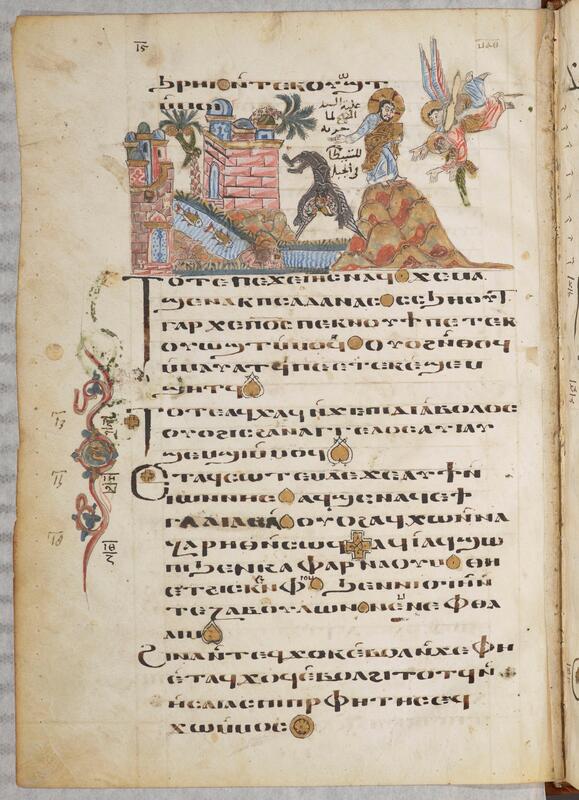 ϧⲣⲏⲓ ⲛ̀ⲧⲉⲕⲟⲩⲱϣⲧ
ⲙ̀ⲙⲟⲓ
السيد
المسيح لما
جربه
الشيطان
في الجبل
ⲧⲟⲧⲉ ⲡⲉϫⲉ ⲓⲏⲥ ⲛⲁϥ ϫⲉ ⲙⲁ
ϣⲉⲛⲁⲕ ⲡⲥⲁⲇⲁⲛⲁⲥ ⲥⲥϧⲏⲟⲩⲧ
ⲅⲁⲣ ϫⲉ ⲡⲟ̅ⲥ̅ ⲡⲉⲕⲛⲟⲩϯ ⲡⲉⲧⲉⲕ
ⲟⲩⲱϣⲧ ⲙ̀ⲙⲟϥ ⲟⲩⲟϩ ⲛ̀ⲑⲟϥ
ⲙ̀ⲙⲁⲩⲁⲧϥ ⲡⲉⲧⲉⲕϣⲉⲙ
ϣⲏⲧϥ
ⲧⲟⲧⲉ ⲁϥⲭⲁϥ ⲛ̀ϫⲉ ⲡⲓⲇⲓⲁⲃⲟⲗⲟⲥ
ⲟⲩⲟϩ ⲓⲥ ϩⲁⲛⲁⲅⲅⲉⲗⲟⲥ ⲁⲩⲓ ⲁⲩ
ϣⲉⲙϣⲓ ⲙ̀ⲙⲟϥ
ⲉⲧⲁϥⲥⲱⲧⲉⲙ ⲇⲉ ϫⲉ ⲁⲩϯ ⲛ̀
ⲓⲱⲁⲛⲛⲏⲥ ⲁϥϣⲉⲛⲁϥ ⲉϯ
ⲅⲁⲗⲓⲗⲉⲁ ⲟⲩⲟϩ ⲁϥⲭⲱ ⲛ̀ⲛⲁ
ⲍⲁⲣⲏⲑ ⲛ̀ⲥⲱϥ ⲁϥⲓ ⲁϥϣⲱ
ⲡⲓ ϧⲉⲛ ⲕⲁⲫⲁⲣⲛⲁⲟⲩⲙ ⲑⲏ
ⲉⲧϩⲓⲥⲕⲉⲛ ⲫⲓⲟⲙ ϧⲉⲛ ⲛⲓϭⲓⲏ ⲛ̀
ⲧⲉ ⲍⲁⲃⲟⲩⲗⲱⲛ ⲛⲉⲙ ⲛⲉⲫⲑⲁ
ⲗⲓⲙ
ϩⲓⲛⲁ ⲛ̀ⲧⲉϥϫⲱⲕ ⲉⲃⲟⲗ ⲛ̀ϫⲉ ⲫⲏ
ⲉⲧⲁϥϫⲟϥ ⲉⲃⲟⲗ ϩⲓⲧⲟⲧϥ ⲛ̀
ⲏⲥⲁⲓⲁⲥ ⲡⲓⲡⲣⲫⲏⲧⲏⲥ ⲉϥ
ϫⲱ ⲙ̀ⲙⲟⲥ